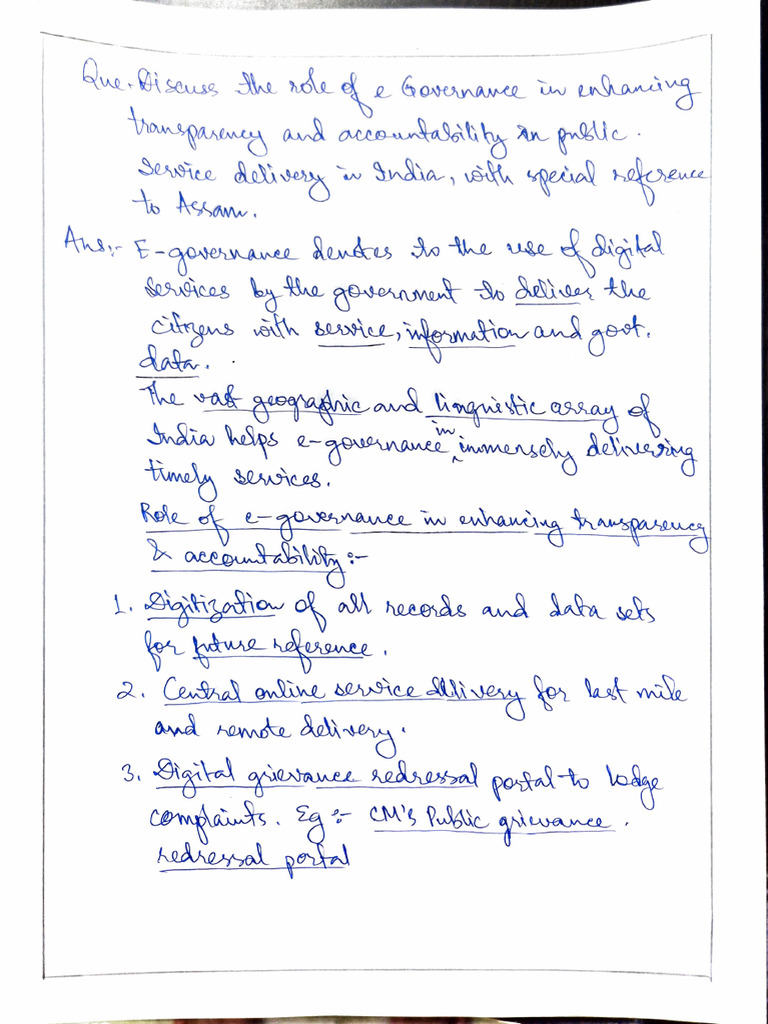 Que. Discuss the role of e Governance in enhancing
transparency and accountability in public.
service delivery in India, with special reference
to Assam.
Ans:- E-governance denotes to the use of digital
services by the government to deliver the
citizens with service, information and govt.
data.
The vast geographic and linguistic array of
India helps e-governance in immensely delivering
timely services.
Role of e-governance in enhancing transparency
& accountability:-
1. Digitization of all records and data sets
for future reference.
2. Central online service delivery for last mile
and remote delivery.
3. Digital grievance redressal portal to lodge
complaints. Eg:- CM's Public grievance.
redressal portal